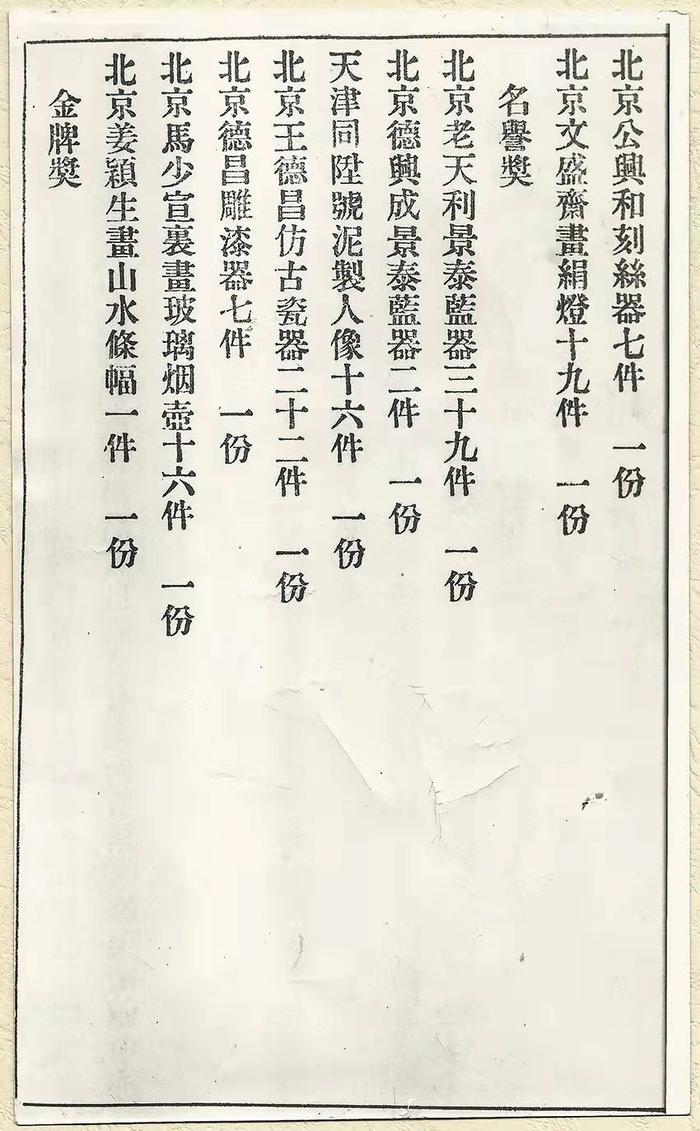 北京公興和刻絲器七件　一份
北京文盛齋畫絹燈十九件　一份
名譽奬
北京老天利景泰藍器三十九件　一份
北京德興成景泰藍器二件　一份
天津同陞號泥製人像十六件　一份
北京王德昌仿古瓷器二十二件　一份
北京德昌雕漆器七件　一份
北京馬少宣裏畫玻璃烟壺十六件　一份
北京姜穎生畫山水條幅一件　一份
金牌奬